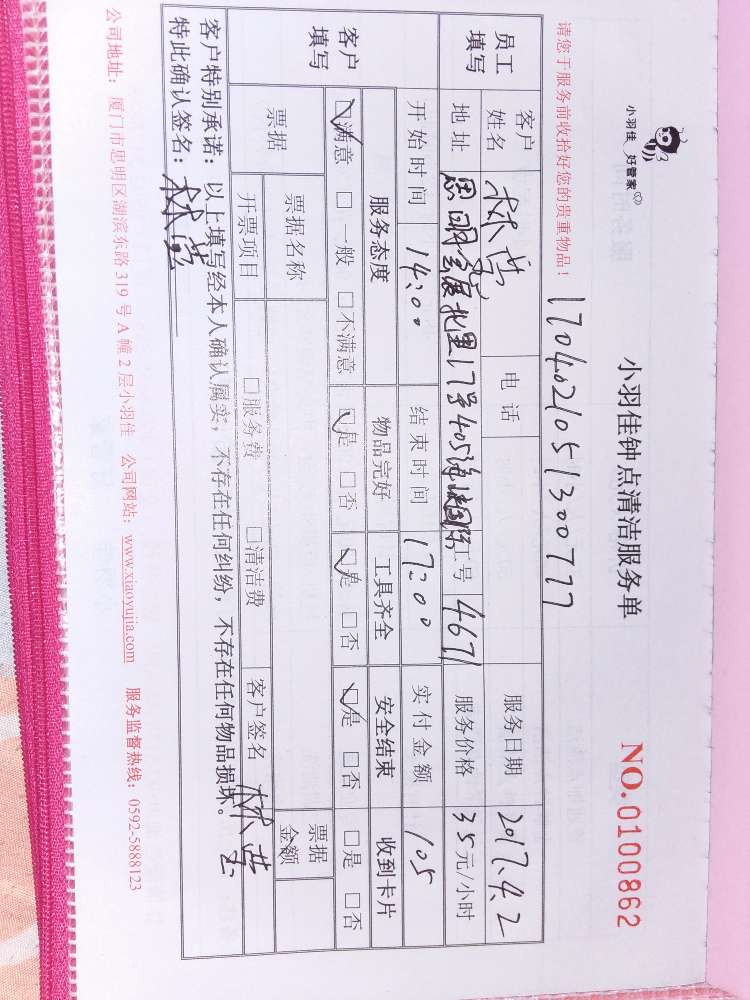 小羽佳 好管家
小羽佳钟点清洁服务单
NO.0100862
请您于服务前收拾好您的贵重物品！
1704021051300777
员工填写
客户姓名 林芸 电话 服务日期 2017.4.2
地址 17号405 工号 4671 服务价格 35元/小时
开始时间 14:00 结束时间 17:00 实付金额 105
客户填写
服务态度 物品完好 工具齐全 安全结束 收到卡片
☑满意 □一般 □不满意 ☑是 □否 ☑是 □否 ☑是 □否 □是 □否
票据 票据名称 票据金额
开票项目 □服务费 □清洁费 客户签名 林芸
客户特别承诺：以上填写经本人确认属实，不存在任何纠纷，不存在任何物品损坏。
特此确认签名：林芸
公司地址：厦门市思明区湖滨东路 319 号 A 幢 2 层小羽佳 公司网站：www.xiaoyujia.com 服务监督热线：0592-5888123